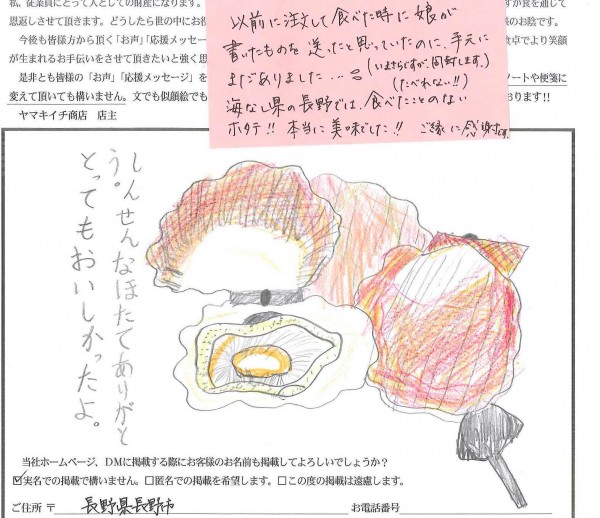 私、従業員にとって人としての財産になります。
恩返しさせて頂きます。どうしたら世の中にお役
今後も皆様方から頂く「お声」「応援メッセージ
が生まれるお手伝いをさせて頂きたいと強く思
是非とも皆様の「お声」「応援メッセージ」を
変えて頂いても構いません。文でも似顔絵でも
ヤマキイチ商店 店主
すが食を通して
の お陰です。
食卓でより笑顔
ノートや便箋に
おります!!
以前に注文して食べた時に娘が
書いたものを送ったと思っていたのに、手元に
まだありました…。
(いまさらですが、同封します。)
(たべれない!!)
海なし県の長野では、食べたことのない
ホタテ!! 本当に美味でした!! ご縁に感謝です。
しんせんなほたてありがと
う。
とってもおいしかったよ。
当社ホームページ、DMに掲載する際にお客様のお名前も掲載してよろしいでしょうか?
☑実名での掲載で構いません。□匿名での掲載を希望します。□この度の掲載は遠慮します。
ご住所 〒 長野県長野市 お電話番号